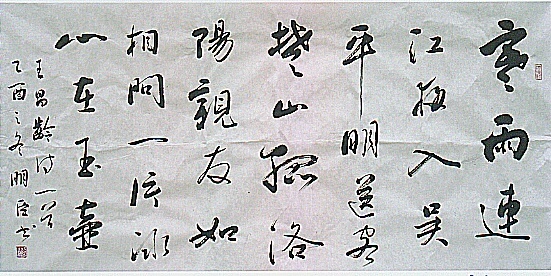 寒雨連
江夜入吴
平明送客
楚山孤洛
陽親友如
相問一片冰
心在玉壺
王昌齡诗一首
乙酉之冬明书